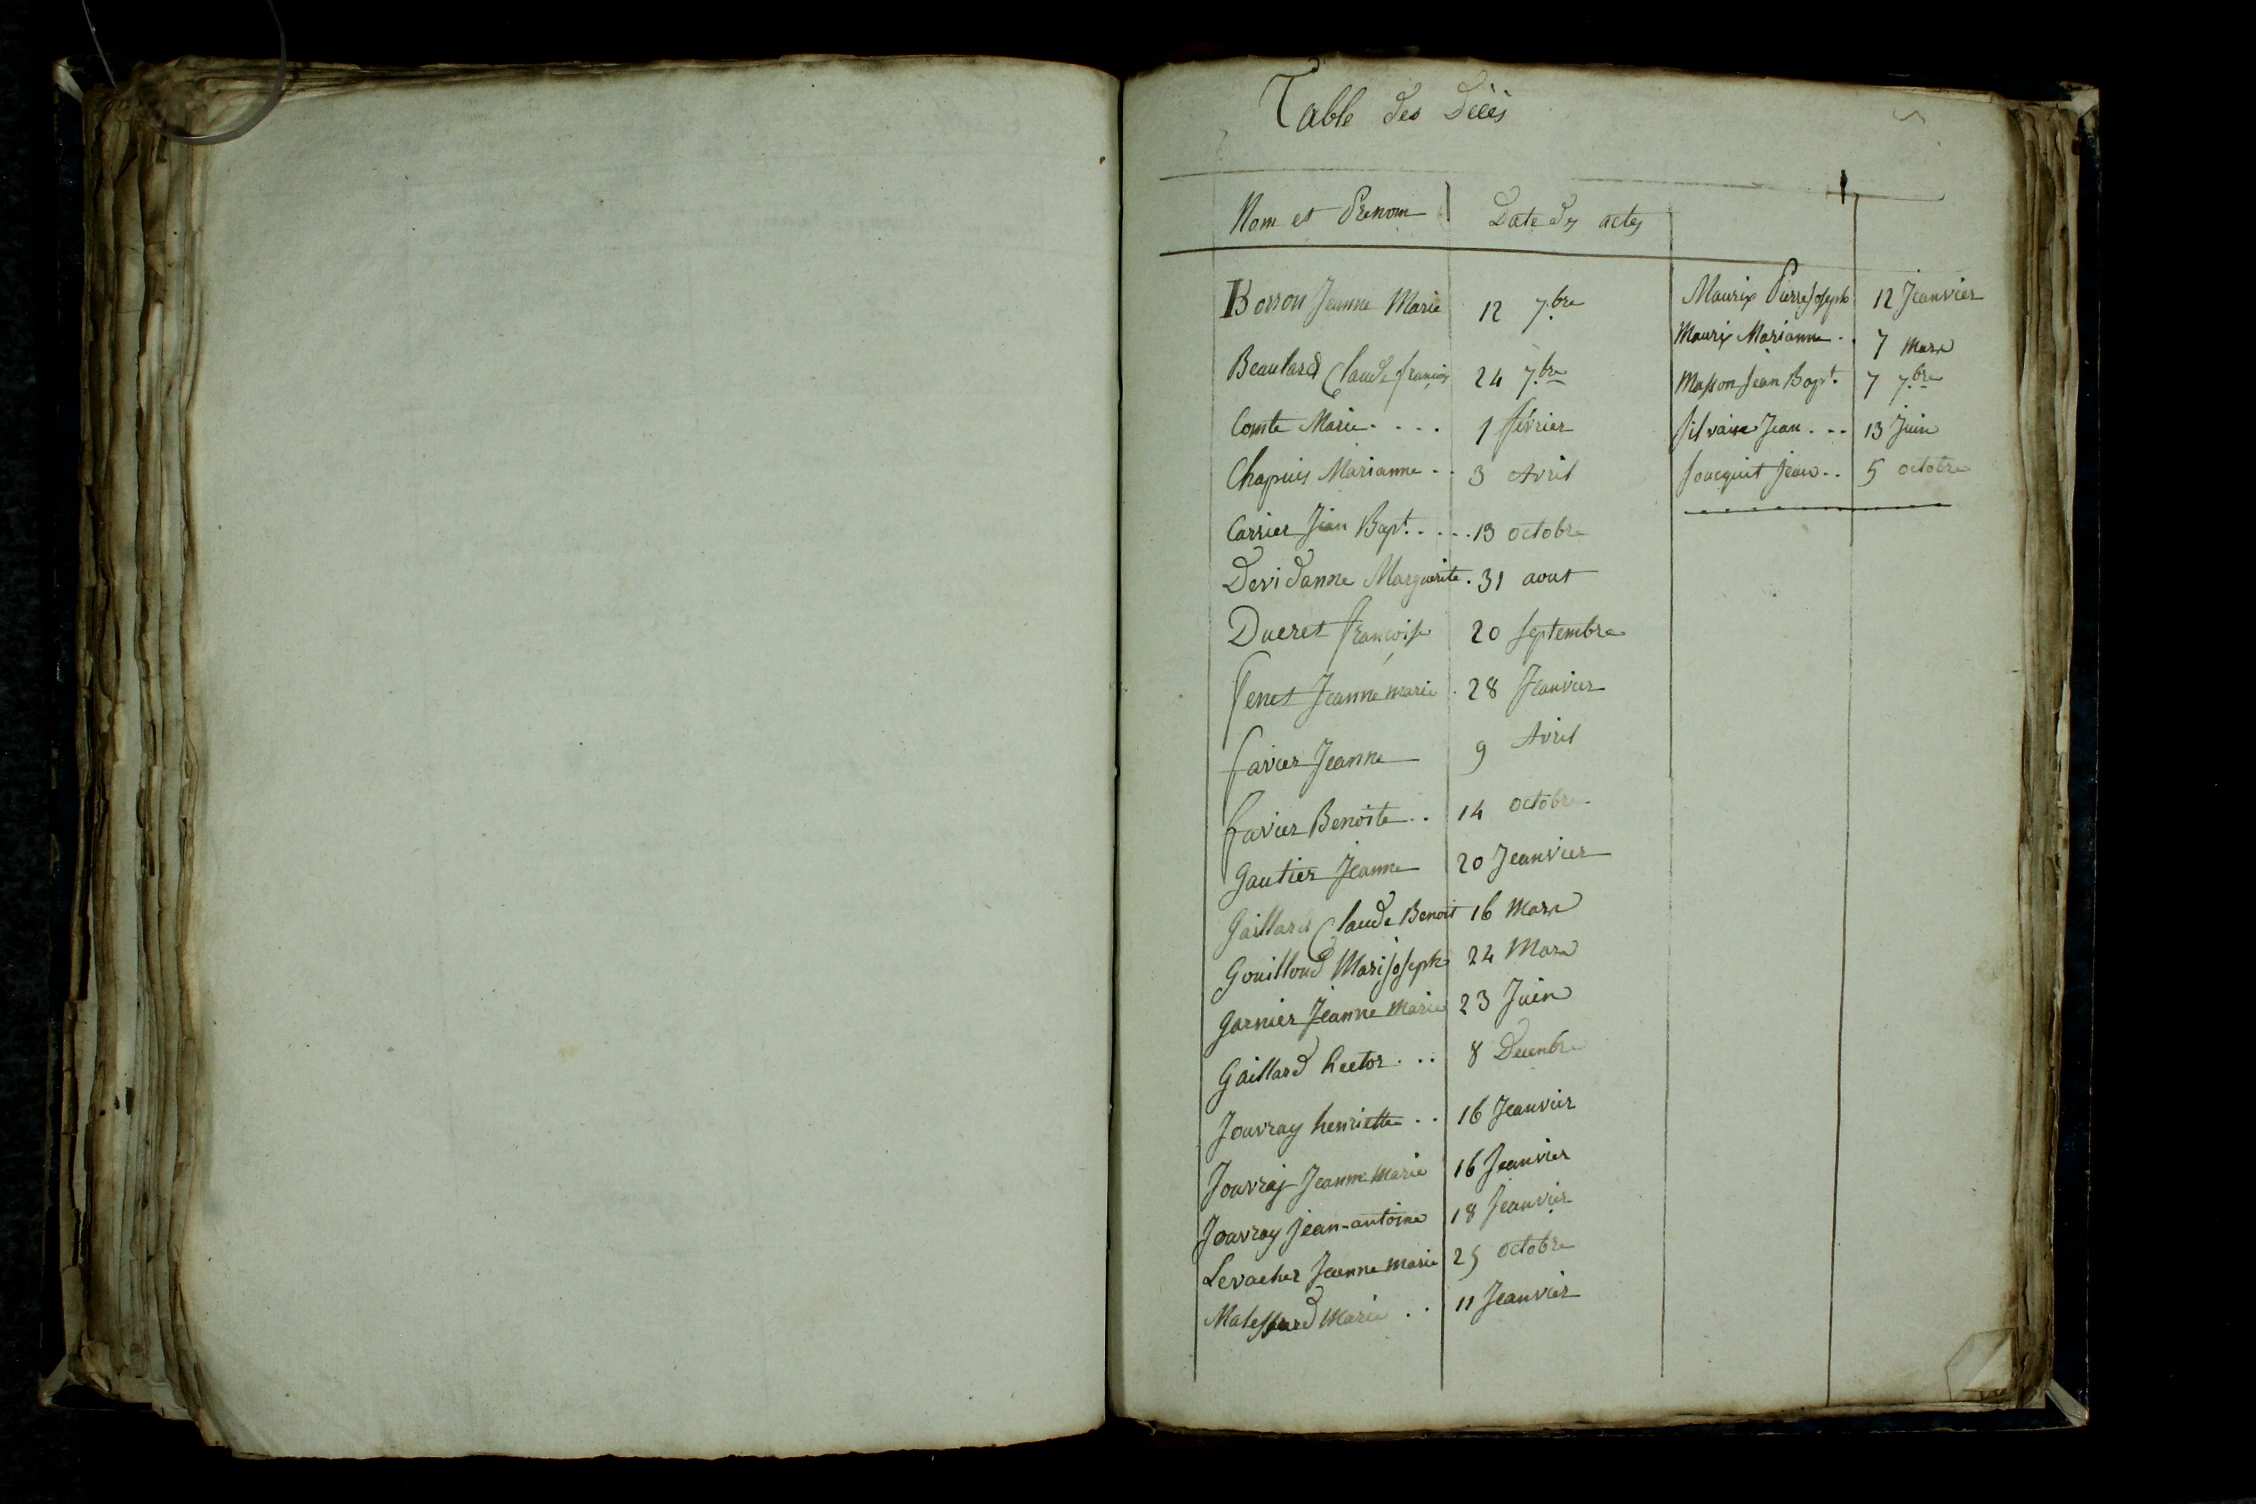 Table des Décès
Nom et Prenom Date des actes
Borron Jeanne Marie 12 7.bre
Beaulard Claude françois 24 7.bre
Comte Marie.... 1 février
Chapuis Marianne.. 3 Avril
Carrier Jean Bapt..... 13 octobre
Devidanne Marguerite. 31 aout
Ducret françoise 20 septembre
fenet Jeanne marie. 28 Jeanvier
favier Jeanne 9 Avril
favier Benoite.. 14 octobre
Gautier Jeanne 20 Jeanvier
Gaillard Claude Benoit 16 Mars
Gouilloud Marijoseph 24 Mars
Garnier Jeanne Marie 23 Juin
Gaillard hector... 8 Decenbre
Jouvray henriette.. 16 Jeanvier
Jouvray Jeanne Marie 16 Jeanvier
Jouvray jean-antoine 18 Jeanvier
Levacher Jeanne Marie 25 octobre
Marie.. 11 Jeanvier
Maurix Pierre Joseph 12 Jeanvier
Maurix Marianne.. 7 Mars
Masson Jean Bapt. 7 7.bre
Silvaine Jean... 13 Juin
Jean.. 5 octobre